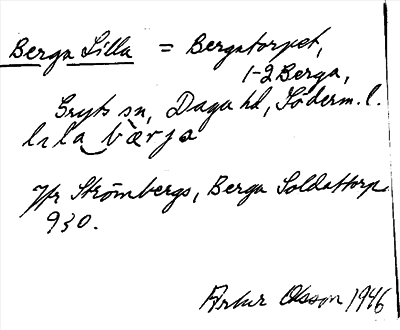 Berga Lilla = Bergatorpet,
1-2 Berga,
Gryts sn, Daga hd, Söderm. l.
lila bærja
Jfr Strömbergs, Berga Soldattorp
930.
Artur Olsson 1946